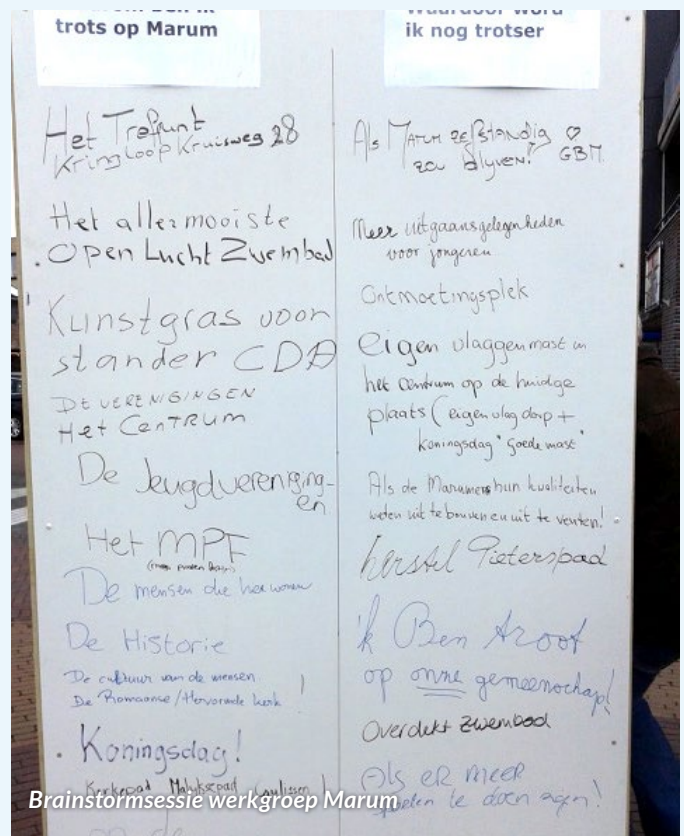 trots op Marum
Het Trefpunt
Kringloop Kruisweg 28
Het allermooiste
Open Lucht Zwembad
Kunstgras voor
stander CDA
DE VERENIGINGEN
Het CenTRUM
De Jeugdvereniging-
en
Het MPF
De mensen die hier wonen
De Historie
De cultuur van de mensen
De Romaanse/Hervormde kerk !
Koningsdag!
Kerkepad
ik nog trotser
Als Marum zelfstandig ♡
zou blijven! GBM
Meer uitgaansgelegenheden
voor jongeren
Ontmoetingsplek
eigen vlaggenmast in
het centrum op de huidige
plaats (eigen vlag dorp +
koningsdag "goede mast"
Als de Marumers hun kwaliteiten
weten uit te bouwen en uit te venten!
herstel Pieterspad
'k Ben troot
op onze gemeenschap!
Overdekt zwembad
Als er meer
te doen
Brainstormsessie werkgroep Marum